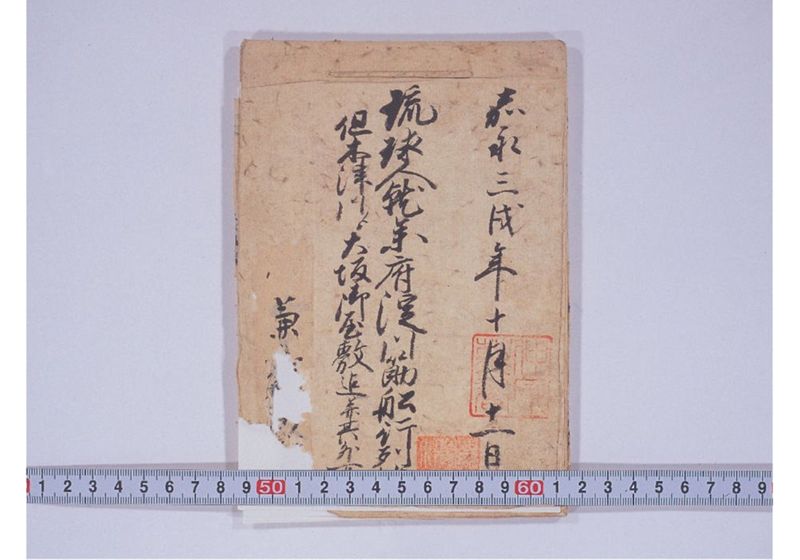 嘉永三戌年十月十一日
琉球人就参府淀川筋舩行列
但木津川ゟ大坂御屋敷迄并其外
1 2 3 4 5 6 7 8 9 50 1 2 3 4 5 6 7 8 9 60 1 2 3 4 5 6 7 8 9